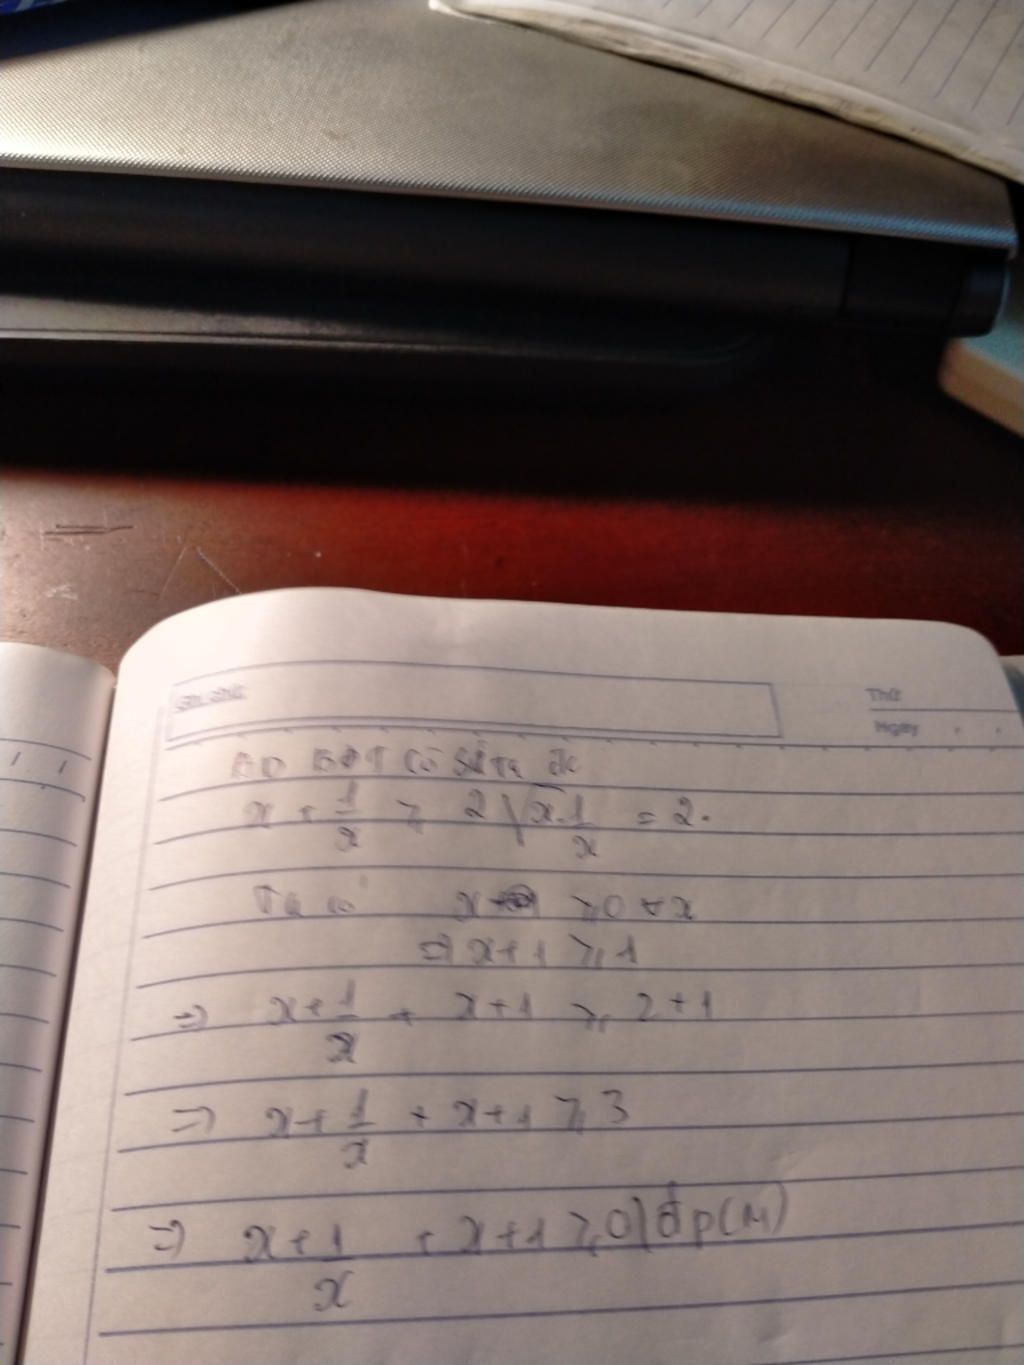 Ghi chú:
Thứ
Ngày
BĐT Cô Si ta đc
x + 1/x ≥ 2√x.1/x = 2.
Ta có x ≥ 0 ∀x
⇒ x+1 ≥ 1
⇒ x+1/x + x+1 ≥ 2+1
⇒ x+1/x + x+1 ≥ 3
⇒ x+1/x + x+1 ≥ 0 (đpcm)